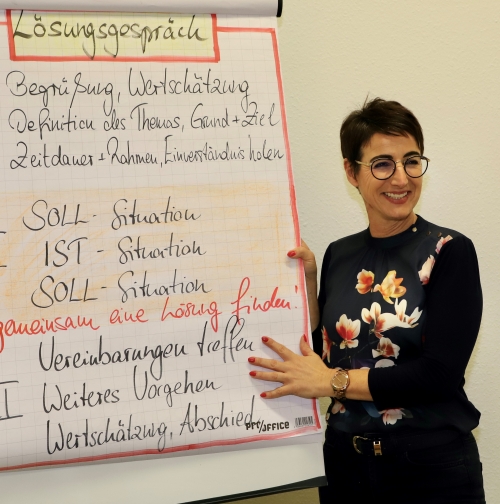 Lösungsgespräch
Begrüßung, Wertschätzung
Definition des Themas, Grund + Ziel
Zeitdauer + Rahmen, Einverständnis holen
SOLL - Situation
IST - Situation
SOLL - Situation
gemeinsam eine Lösung finden!
Vereinbarungen treffen
II Weiteres Vorgehen
Wertschätzung, Abschied
PRO/OFFICE